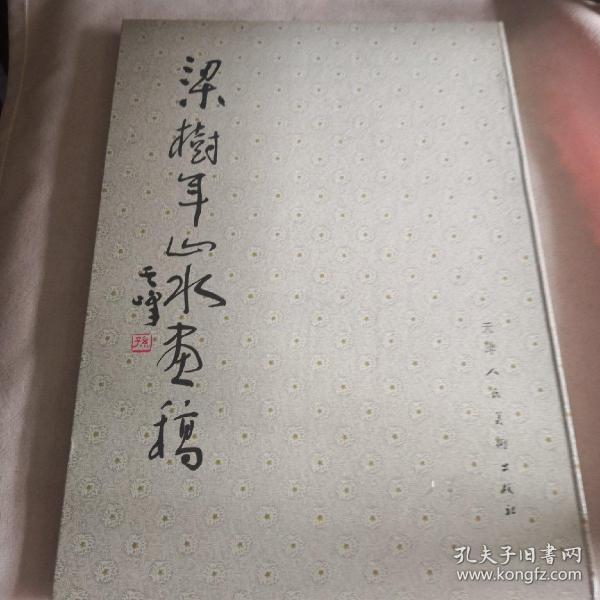 梁樹年山水畫稿
其峰
孫
天津人民美術出版社
孔夫子旧書网
www.kongfz.com